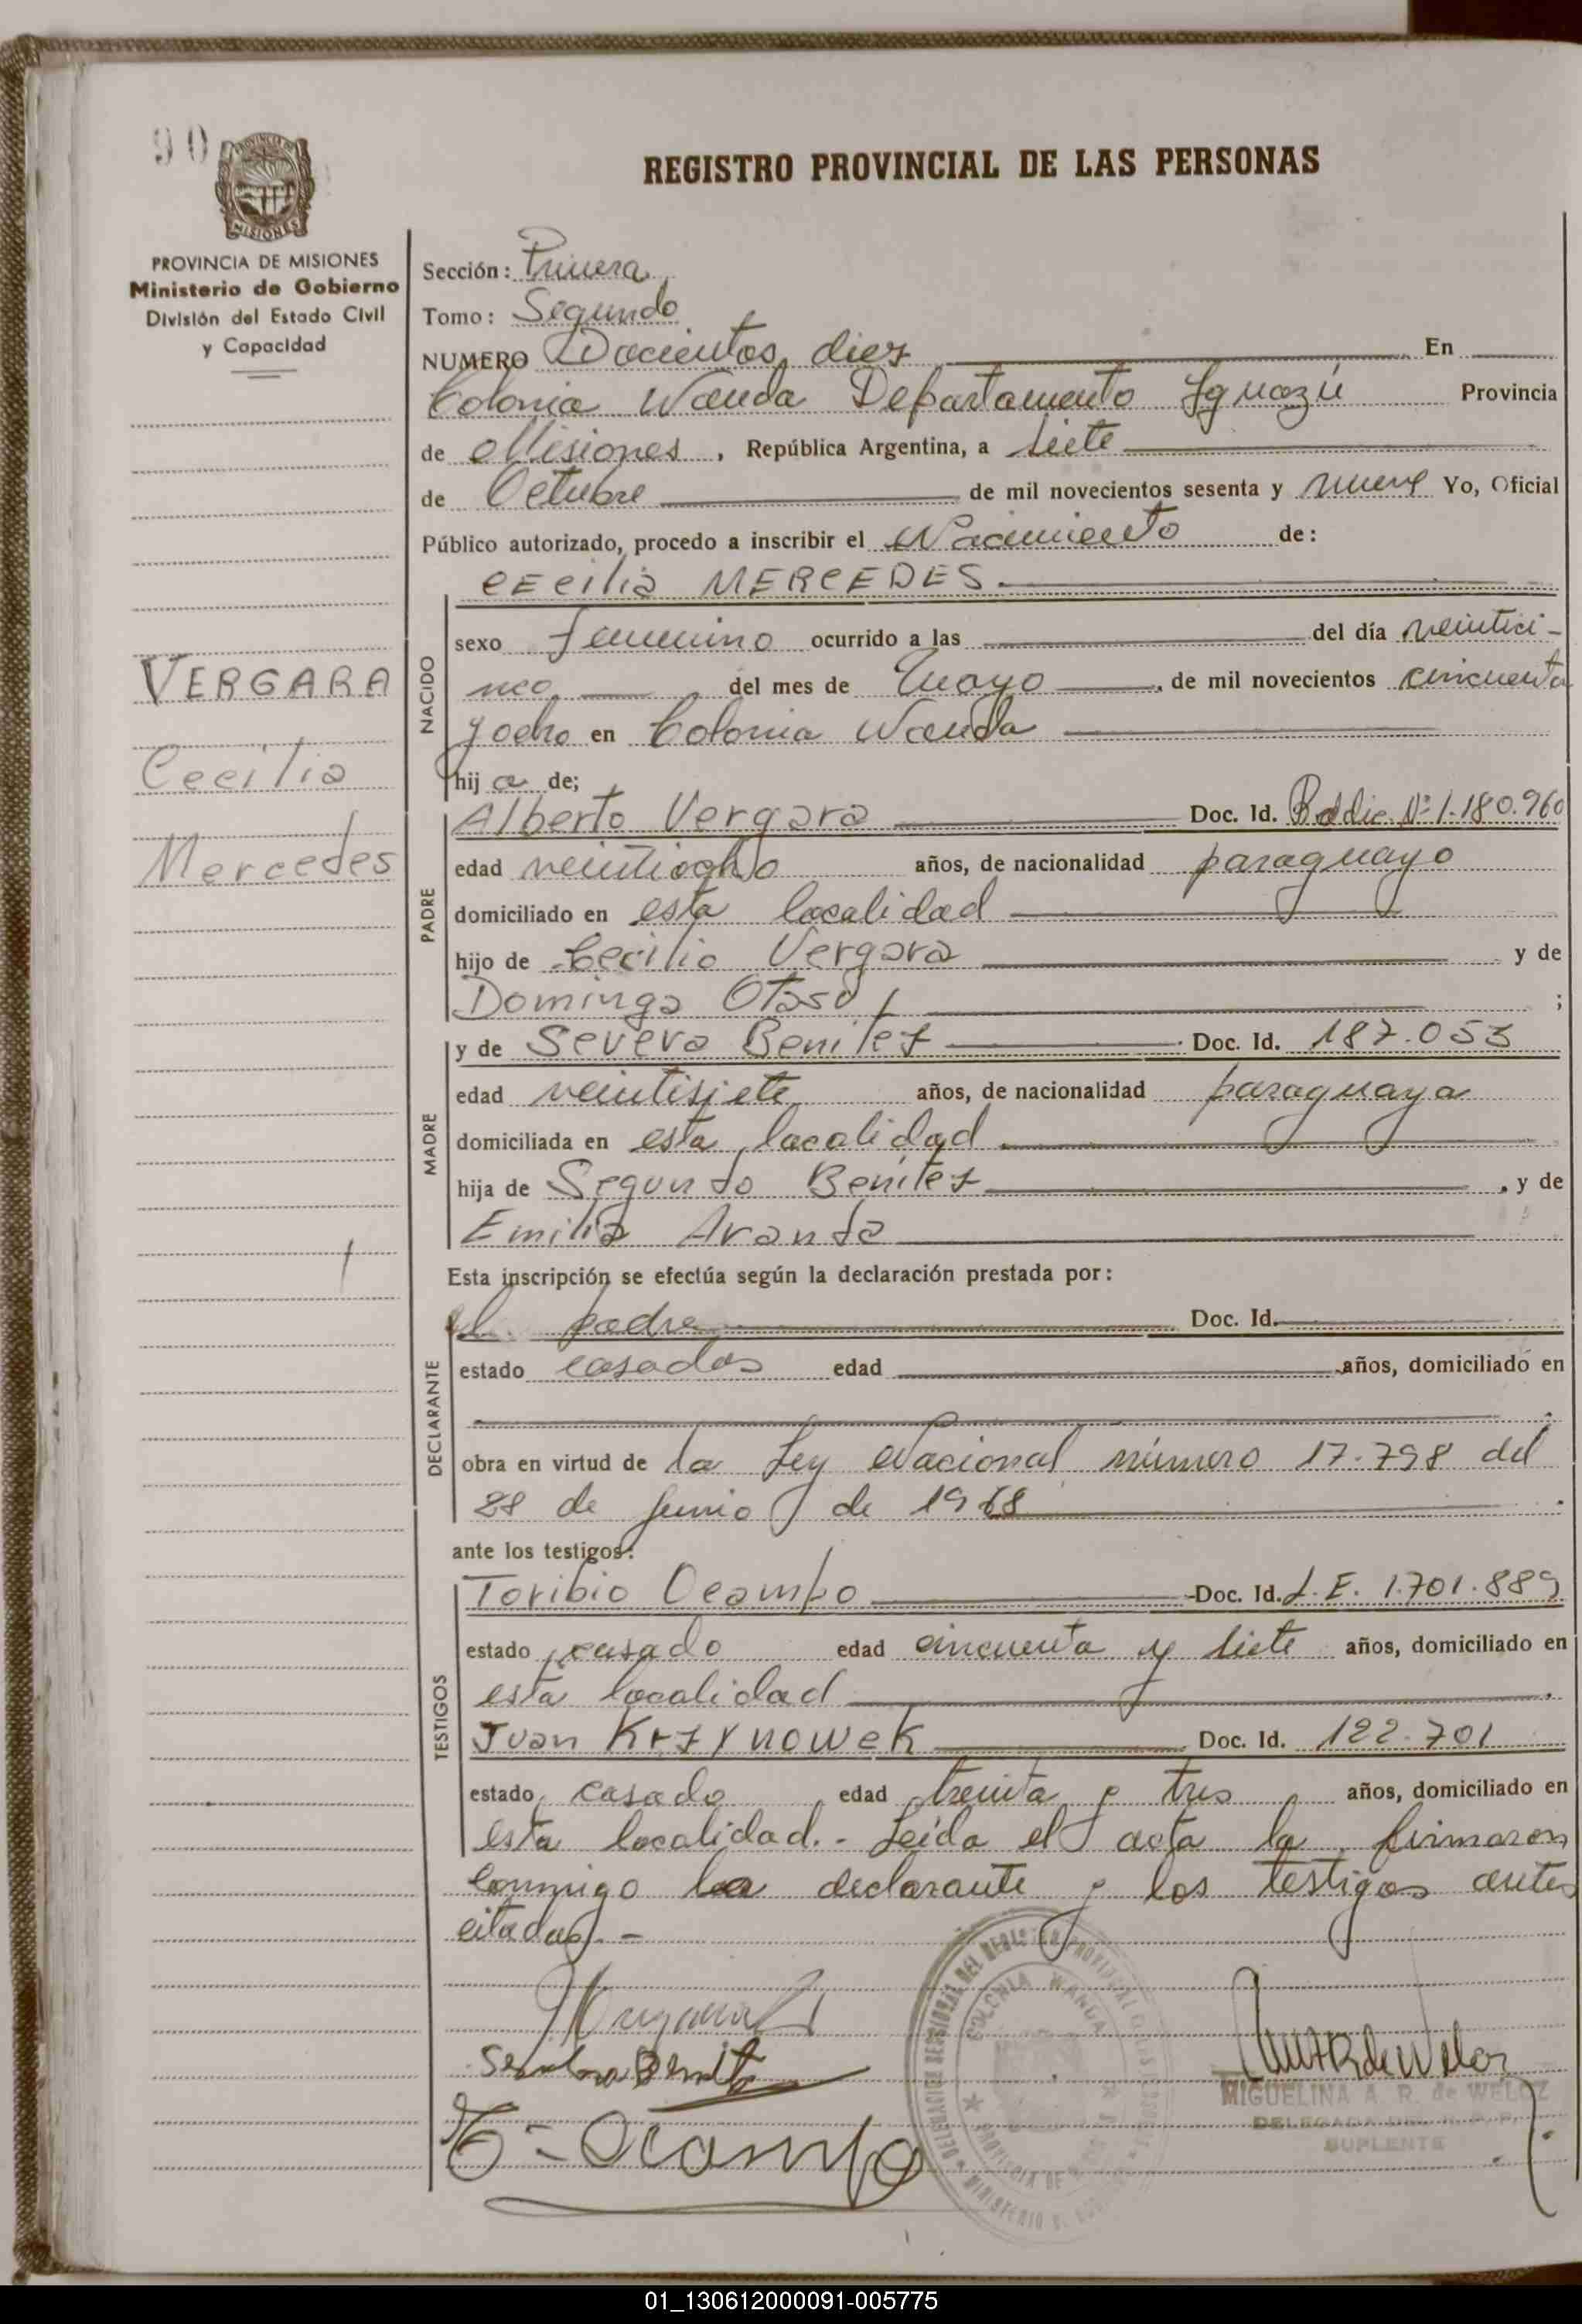 90
REGISTRO PROVINCIAL DE LAS PERSONAS
PROVINCIA DE MISIONES
Ministerio de Gobierno
División del Estado Civil
y Capacidad
Sección: Primera
Tomo: Segundo
NUMERO Docientos diez En
Colonia Wanda Departamento Iguazú Provincia
de Misiones, República Argentina, a siete
de Octubre de mil novecientos sesenta y nueve Yo, Oficial
Público autorizado, procedo a inscribir el Nacimiento de:
CECILIA MERCEDES.
NACIDO
sexo femenino ocurrido a las del día veintici-
VERGARA
nco del mes de Mayo, de mil novecientos cincuenta
y ocho en Colonia Wanda
Cecilia
hija de;
Mercedes
PADRE
Alberto Vergara Doc. Id. Nº 1.180.960
edad veintiocho años, de nacionalidad paraguayo
domiciliado en esta localidad
hijo de Cecilio Vergara y de
Dominga Otaso;
MADRE
y de Severa Benitez Doc. Id. 187.053
edad veintisiete años, de nacionalidad paraguaya
domiciliada en esta localidad
hija de Segundo Benitez, y de
Emilia Aranda
Esta inscripción se efectúa según la declaración prestada por:
DECLARANTE
el padre Doc. Id.
estado casados edad años, domiciliado en
obra en virtud de la Ley Nacional número 17.798 del
28 de Junio de 1968.
ante los testigos:
TESTIGOS
Toribio Ocampo Doc. Id. L.E. 1.701.889
estado casado edad cincuenta y siete años, domiciliado en
esta localidad.
Juan Krzynowek Doc. Id. 122.701
estado casado edad treinta y tres años, domiciliado en
esta localidad.- Leída el acta la firmaron
conmigo la declarante y los testigos antes
citados.-
T=Ocampo
COLONIA WANDA
MIGUELINA A. R. de WELOZ
DELEGADA DEL R. P. P.
SUPLENTE
01_130612000091-005775